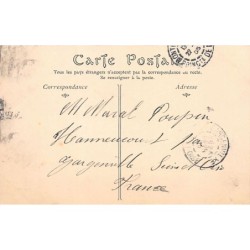 Carte Postale
Tous les pays étrangers n'acceptent pas la correspondance au recto.
Se renseigner à la poste.
Correspondance
Adresse
M Marcel Poupin
Hanneucourt par
Gargenville Seine et Oise
France